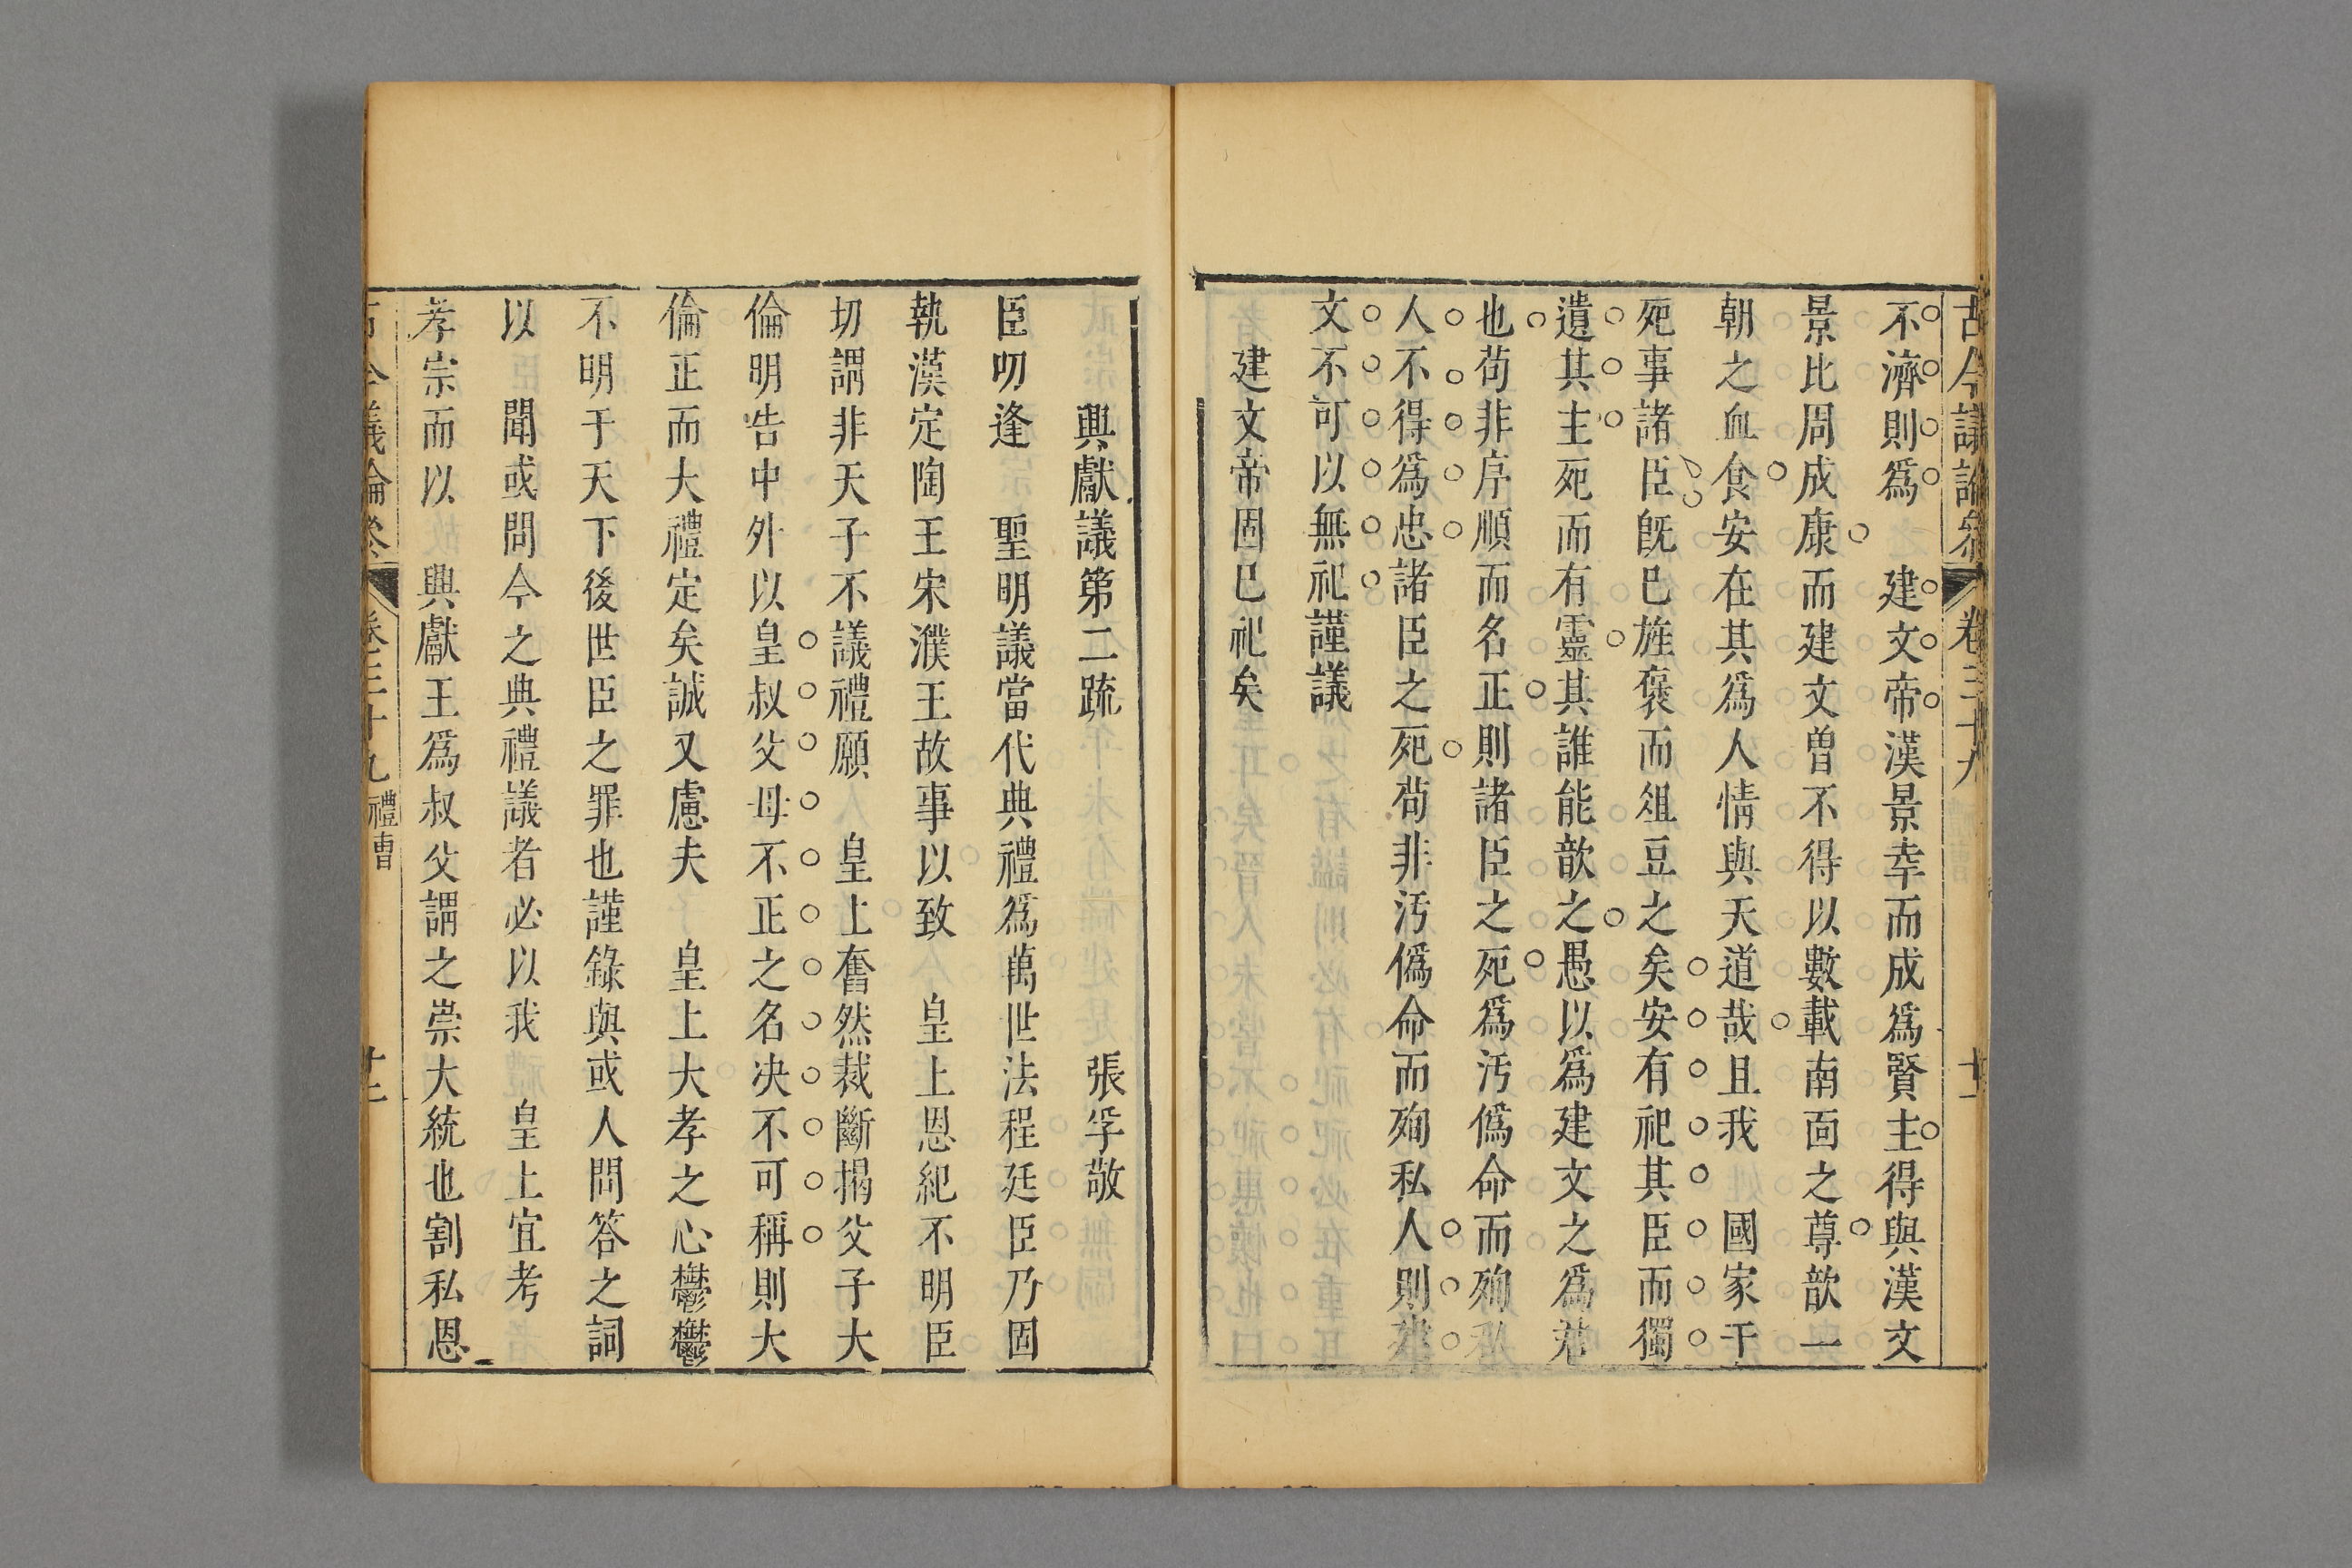 古今議論參 卷三十九 十一
不濟則爲 建文帝漢景幸而成爲賢主得與漢文
景比周成康而建文曾不得以數載南面之尊歆一
朝之血食安在其爲人情與天道哉且我 國家于
死事諸臣旣已旌褒而俎豆之矣安有祀其臣而獨
遺其主死而有靈其誰能歆之愚以爲建文之爲
也苟非序順而名正則諸臣之死爲汚僞命而殉私
人不得爲忠諸臣之死苟非汚僞命而殉私人則建
文不可以無祀謹議
建文帝固已祀矣
興獻議第二疏 張孚敬
臣叨逢 聖明議當代典禮爲萬世法程廷臣乃固
執漢定陶王宋濮王故事以致 皇上恩紀不明臣
切謂非天子不議禮願 皇上奮然裁斷揭父子大
倫明告中外以皇叔父母不正之名决不可稱則大
倫正而大禮定矣誠又慮夫 皇上大孝之心鬱鬱
不明于天下後世臣之罪也謹錄與或人問答之詞
以 聞或問今之典禮議者必以我 皇上宜考
孝宗而以 興獻王爲叔父謂之崇大統也割私恩
古今議論參 卷三十九 禮曹